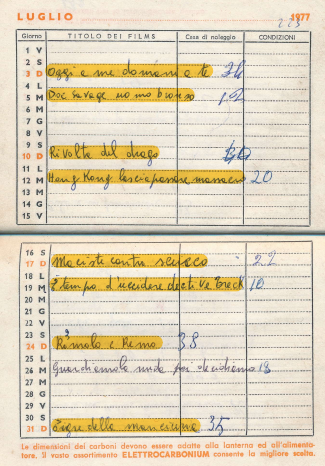 LUGLIO 1977
223
Giorno TITOLO DEI FILMS Casa di noleggio CONDIZIONI
1 V
2 S
3 D Oggi a me domani a te 26
4 L
5 M Doc Savage uomo bronzo 12
6 M
7 G
8 V
9 S
10 D Rivolta del drago
11 L
12 M Hong Kong 20
13 M
14 G
15 V
16 S
17 D Maciste contro sceicco 22
18 L
19 M È tempo d'uccidere detective Treck 10
20 M
21 G
22 V
23 S
24 D Romolo e Remo 38
25 L
26 M Guardiamola nuda poi decidiamo 18
27 M
28 G
29 V
30 S
31 D Tigre della manciuria 35
Le dimensioni dei carboni devono essere adatte alla lanterna ed all'alimento-
tore. Il vasto assortimento ELETTROCARBONIUM consente la migliore scelta.